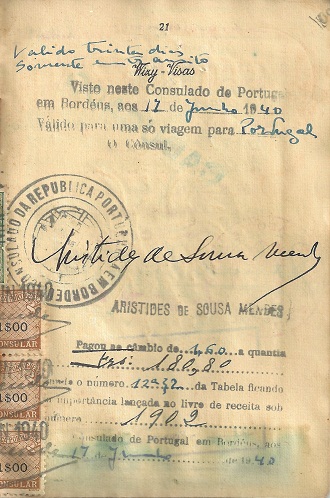 21
Valido trinta dias
Somente em transito
Wizy-Visas
Visto neste Consulado de Portugal
em Bordéus, aos 17 de Junho 1940
Válido para uma só viagem para Portugal
O Cônsul,
CONSULADO DA REPUBLICA PORT EM BORDEUS
Aristides de Sousa Mendes
ARISTIDES DE SOUSA MENDES
Pagou ao câmbio de 1,60 a quantia
Esc: 180,80
o número da Tabela ficando
importância lançada ao livro de receita sob
número 1902
Consulado de Portugal em Bordéus, aos
17 Junho 1940
1$00
CONSULAR
1$00
CONSULAR
1$00
CONSULAR